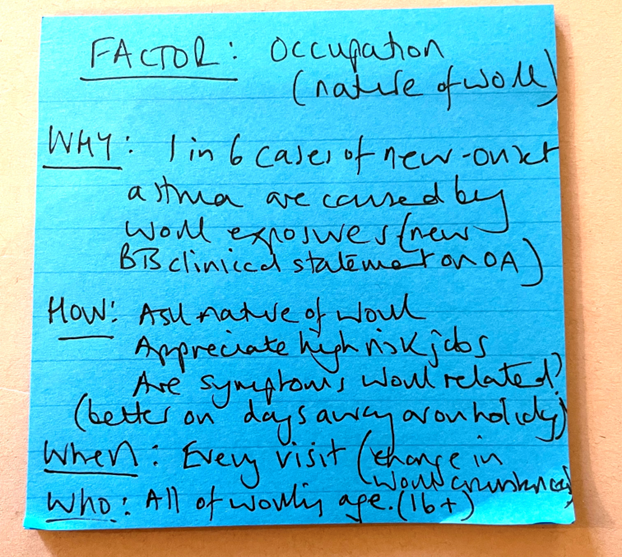 FACTOR: Occupation
(nature of work)
WHY: 1 in 6 cases of new-onset
asthma are caused by
work exposures (new
BTS clinical statement on OA)
HOW: Ask nature of work
Appreciate high risk jobs
Are symptoms work related?
(better on days away or on holiday)
When: Every visit (change in
work circumstances)
Who: All of working age. (16+)